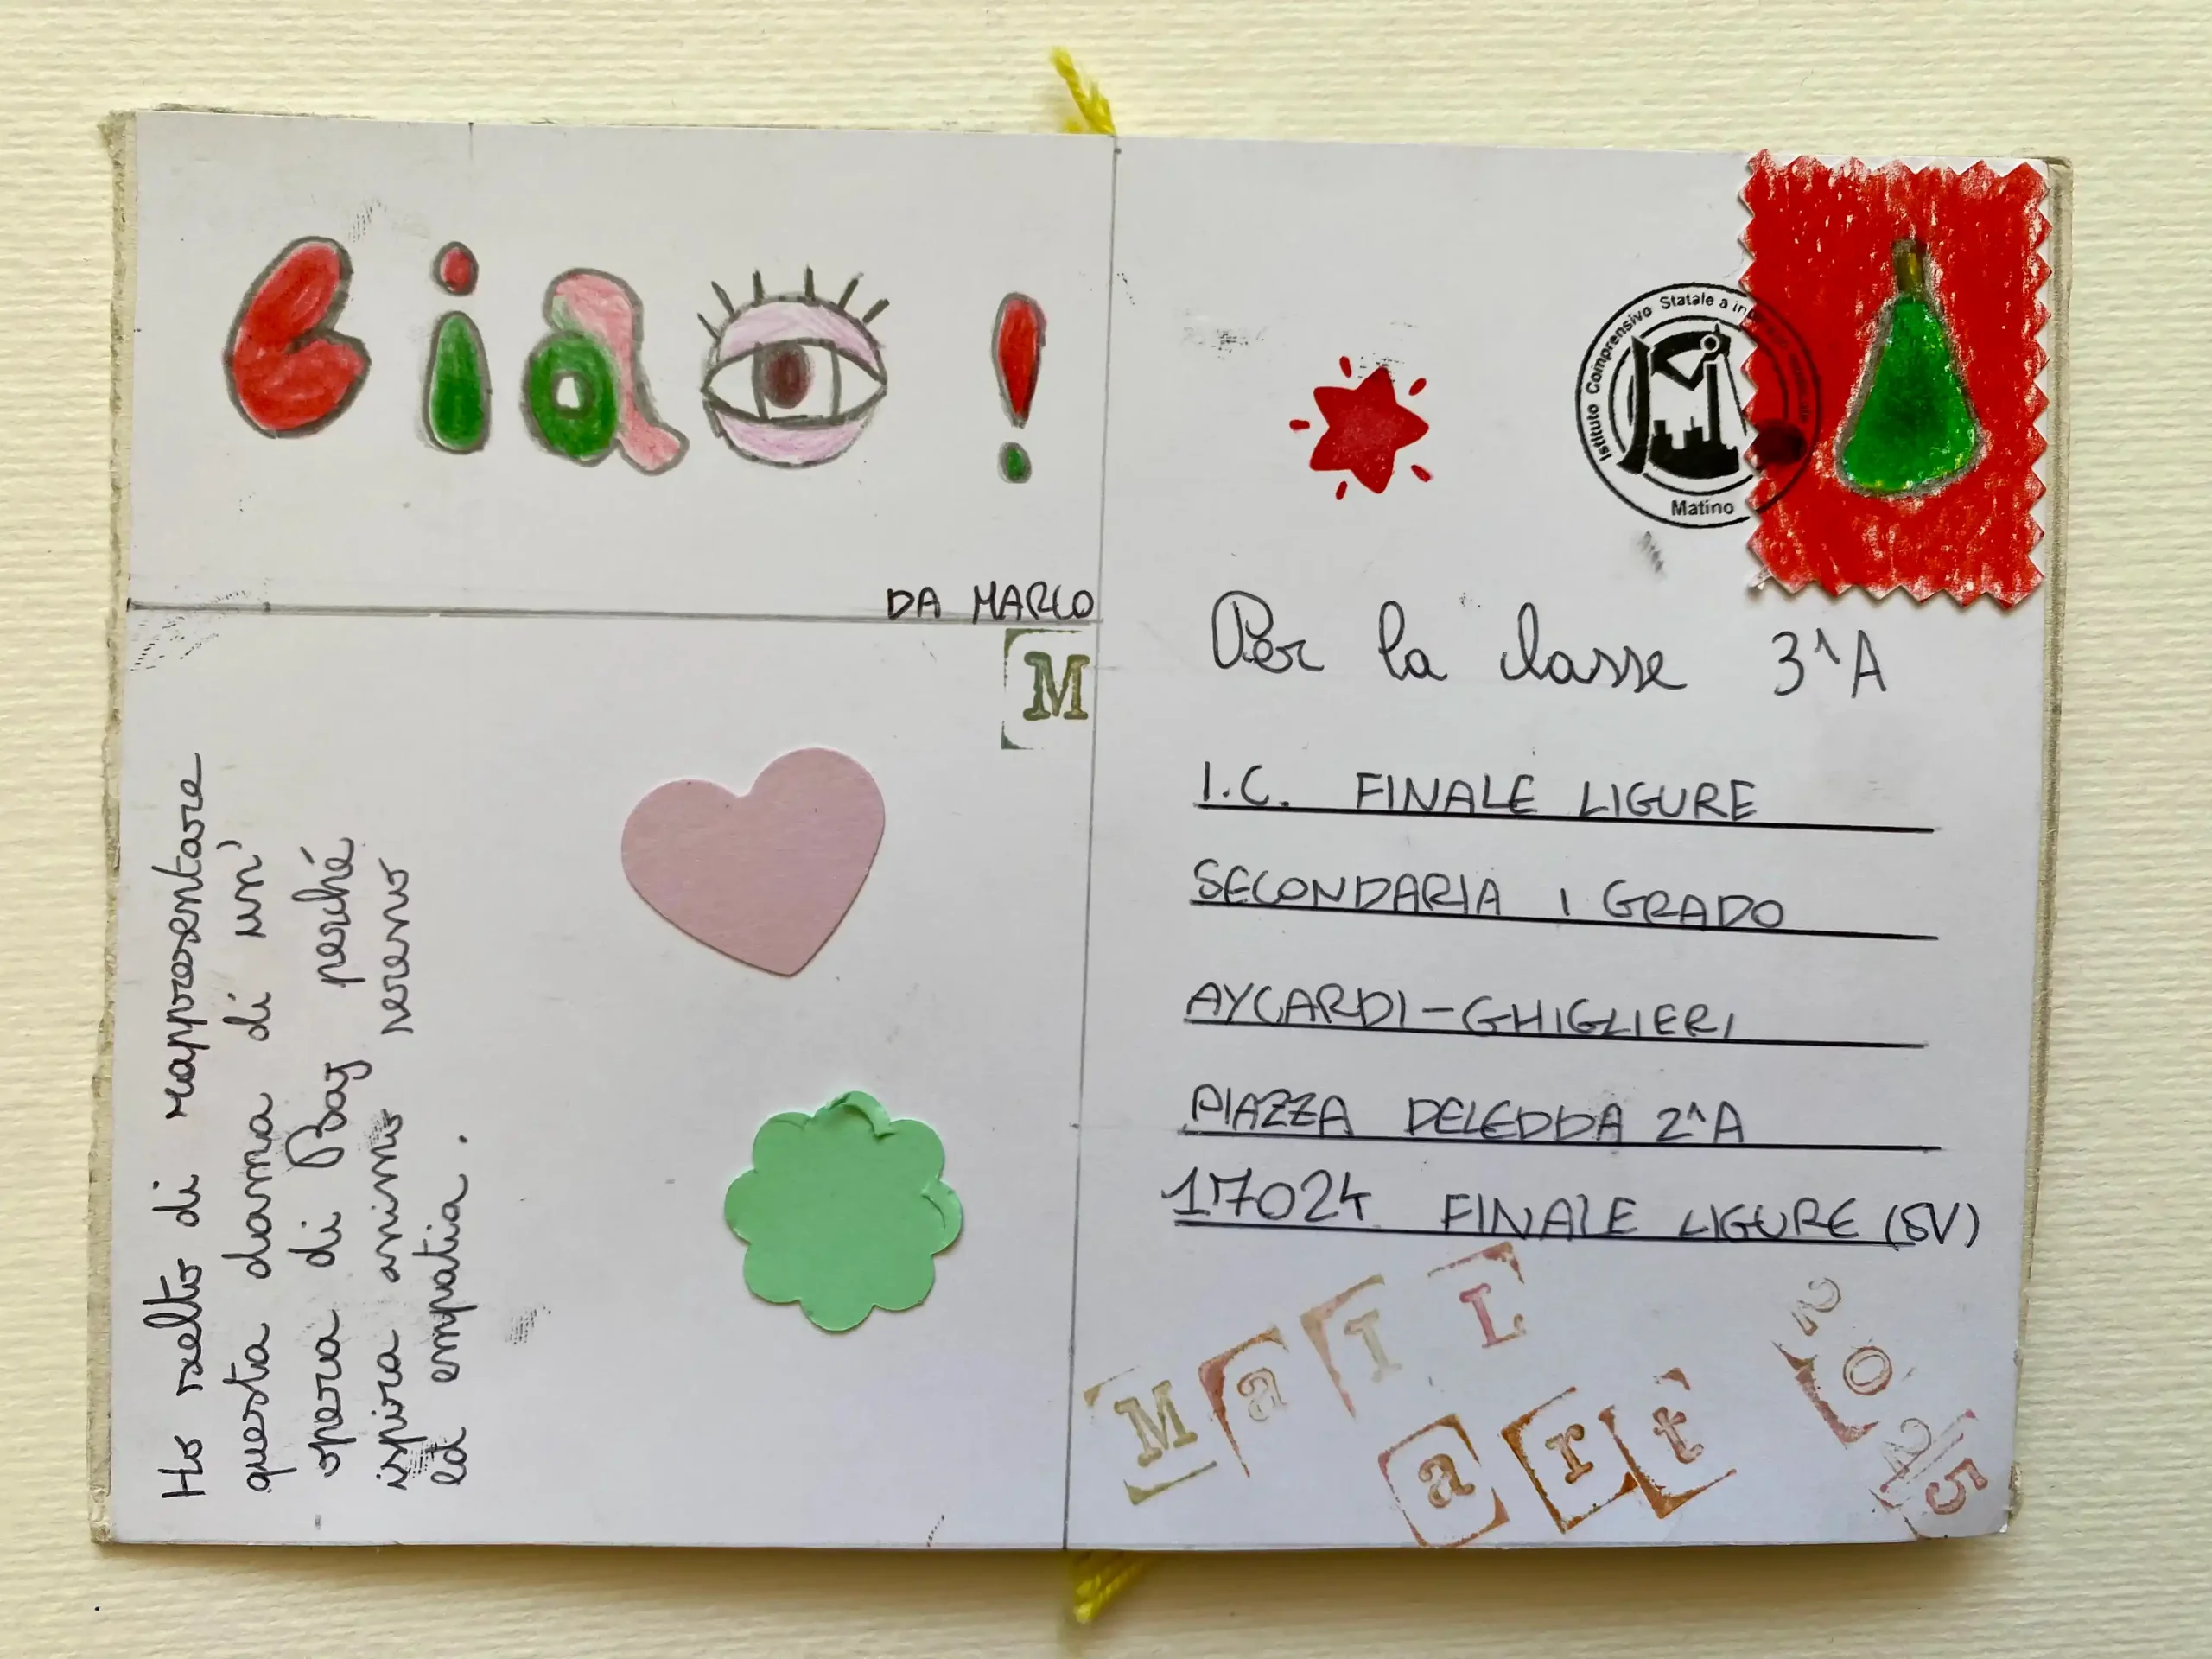 Ciao!
DA MARCO
M
Ho scelto di rappresentare
questa dama di un'
opera di Baj perché
ispira animo sereno
ed empatia.
Istituto Comprensivo Statale a
Matino
Per la classe 3^A
I.C. FINALE LIGURE
SECONDARIA I GRADO
AYCARDI-GHIGLIERI
PIAZZA DELEDDA 2^A
17024 FINALE LIGURE (SV)
MaIL
art
2025